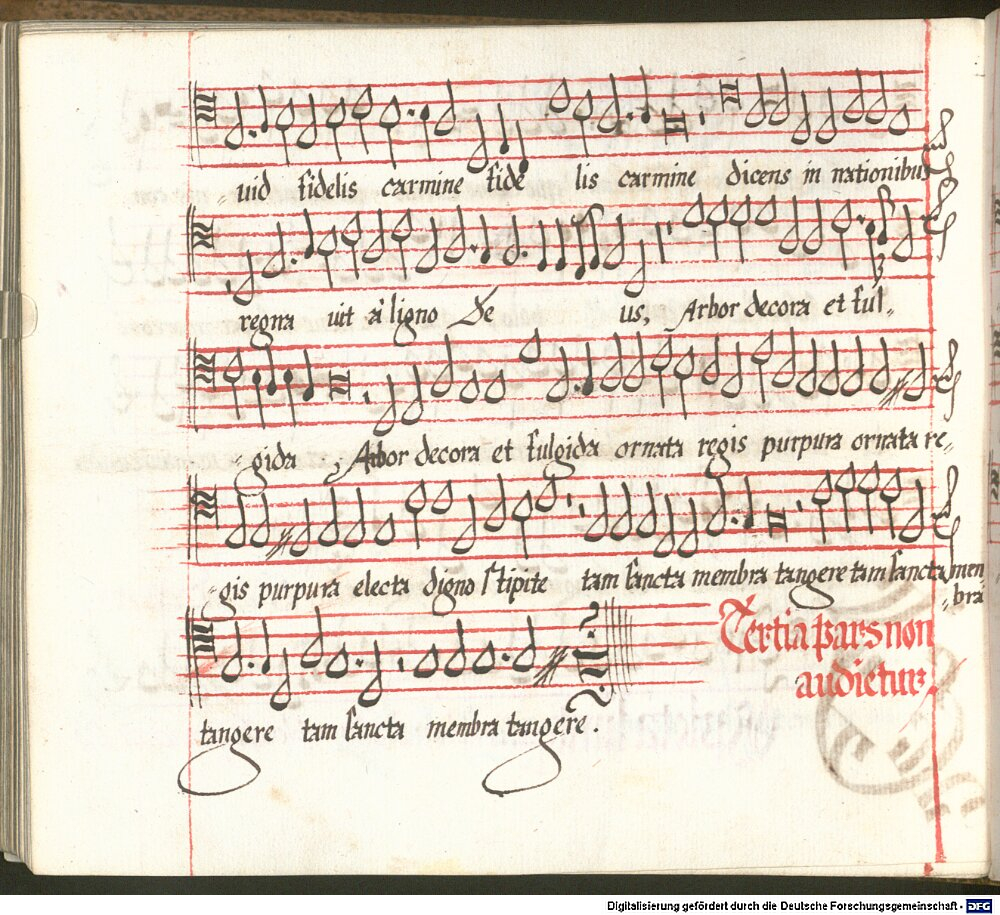 uid fidelis carmine fide lis carmine dicens in nationibus
regna uit à ligno De us, Arbor decora et ful„
gida, Arbor decora et fulgida ornata regis purpura ornata re„
„gis purpura electa digno stipite tam sancta membra tangere tam sancta mem
„bra
Tertia pars non
audietur.
tangere tam sancta membra tangere.
Digitalisierung gefördert durch die Deutsche Forschungsgemeinschaft - DFG